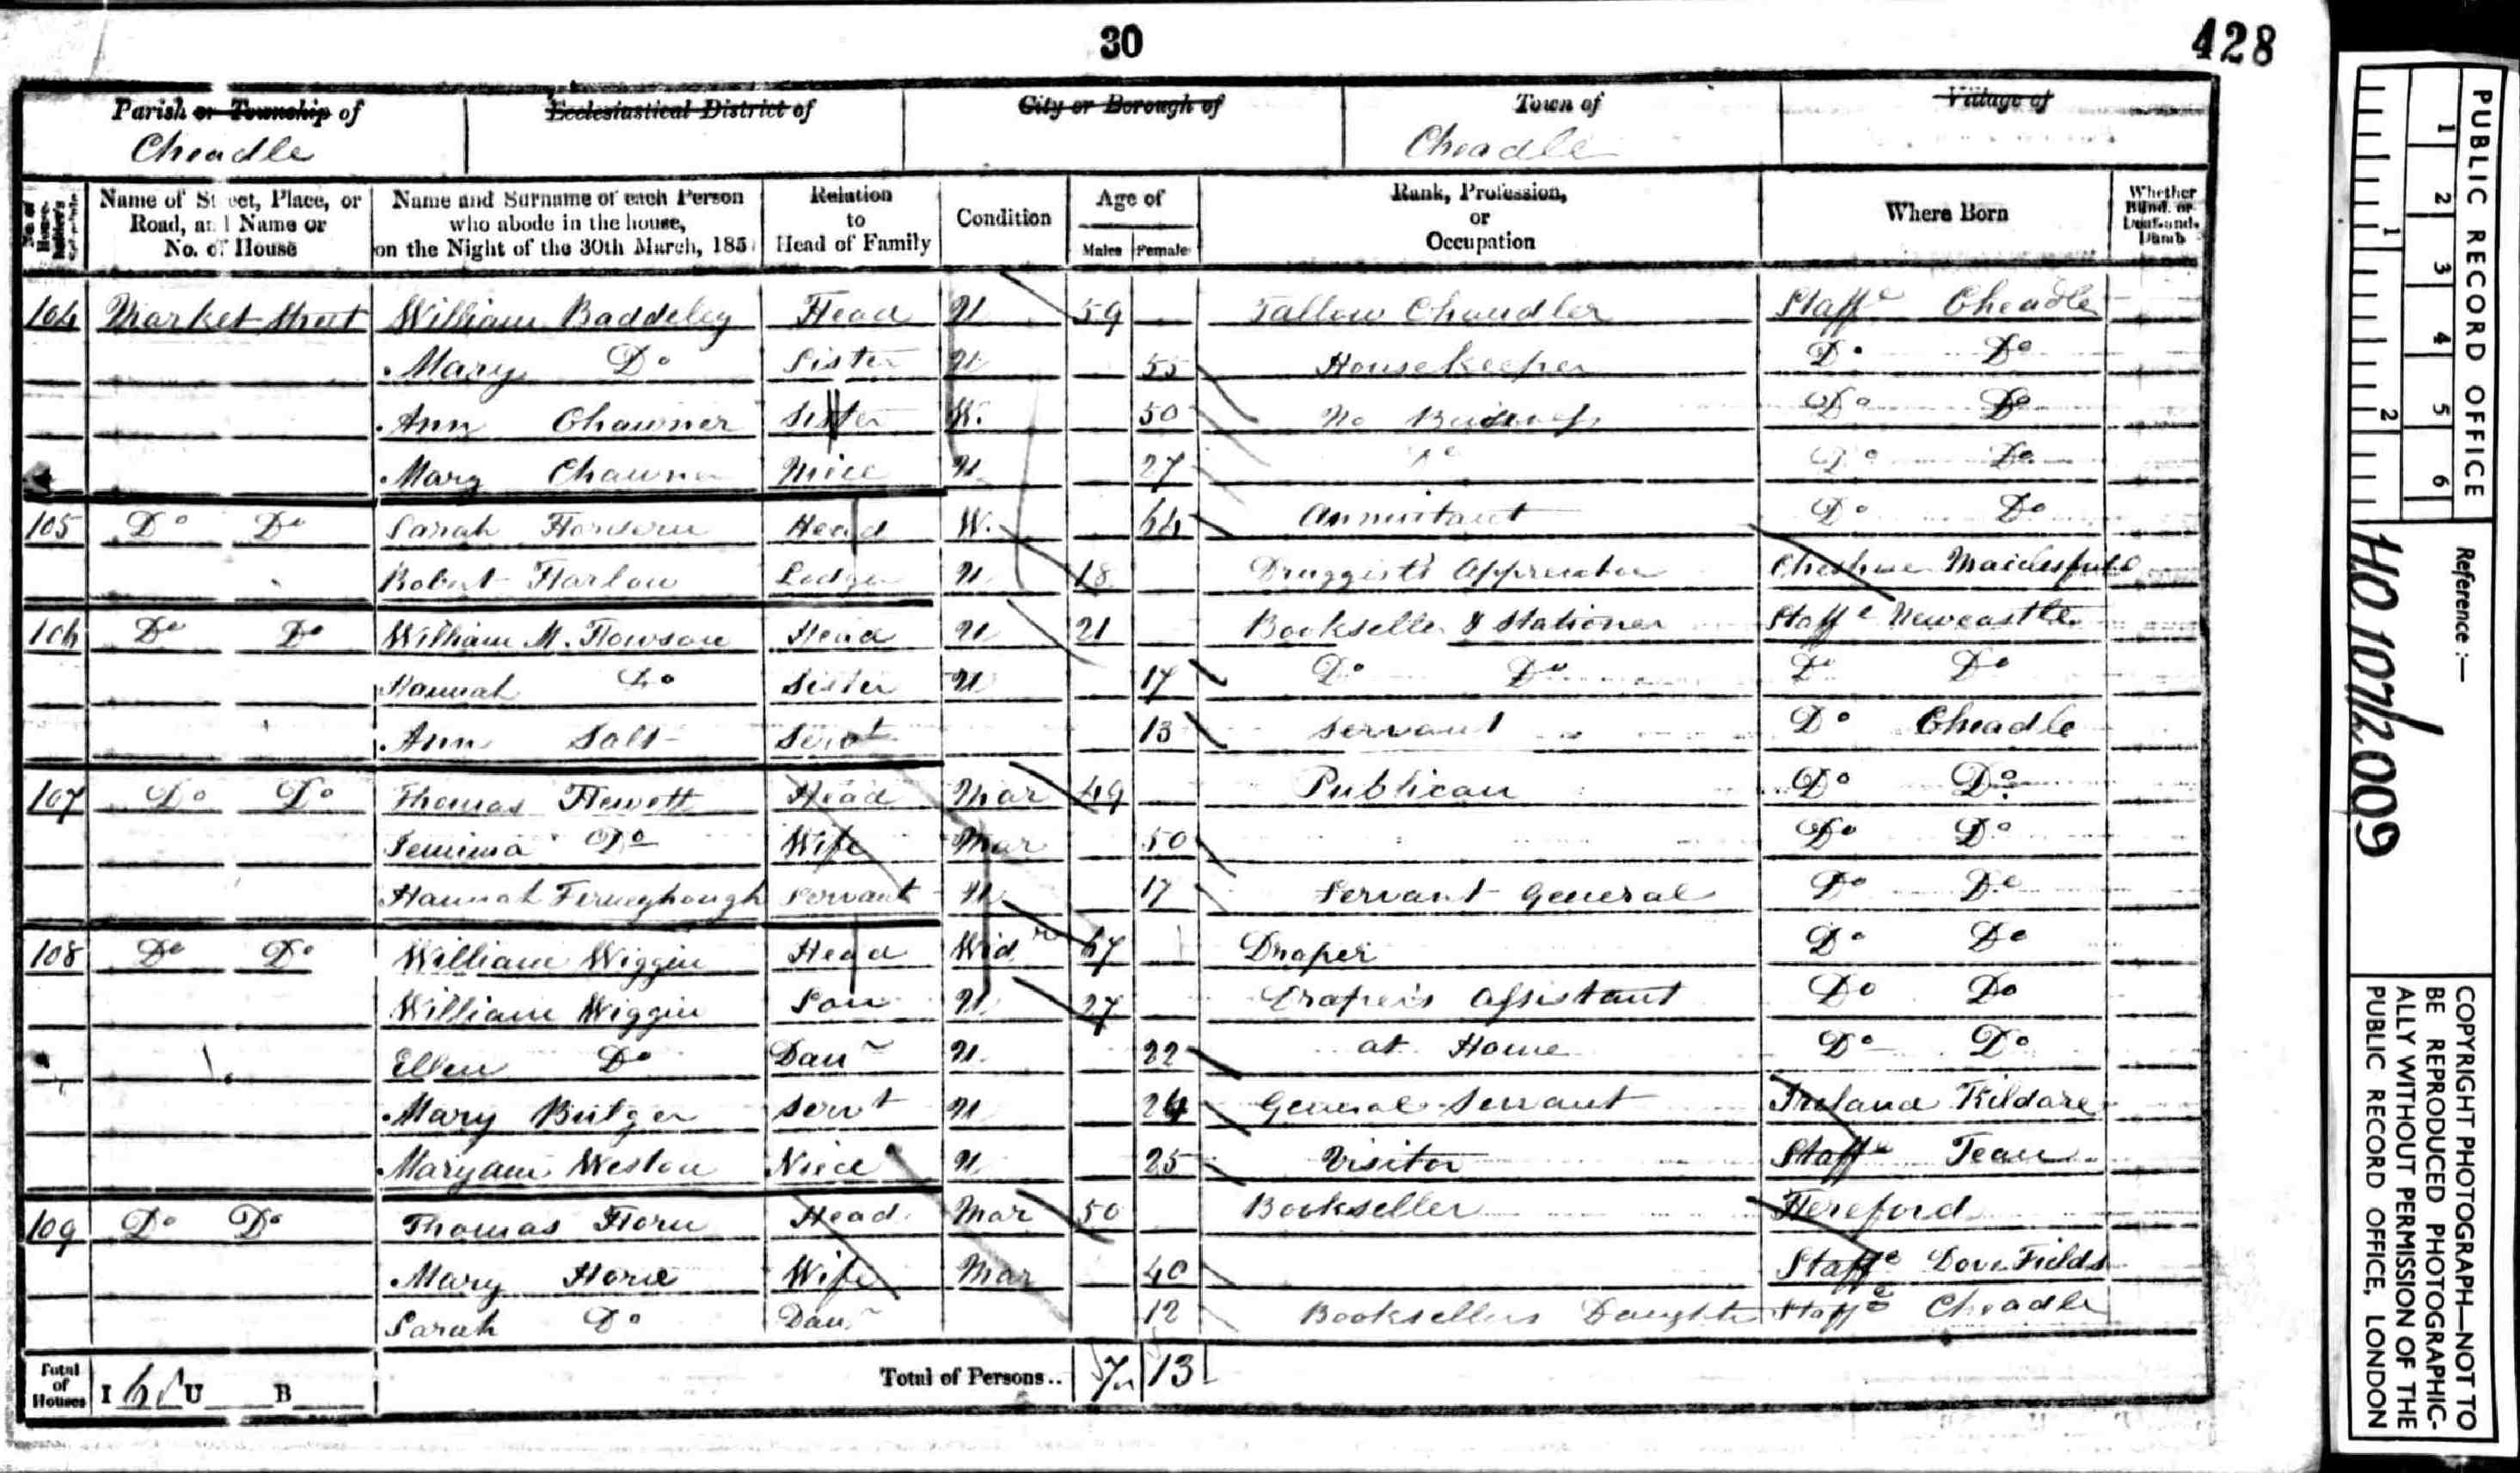 30
428
Parish or Township of
Cheadle
Ecclesiastical District of
City or Borough of
Town of
Cheadle
Village of
No. of House-
Name of Street, Place, or Road, and Name or No. of House
Name and Surname of each Person who abode in the house, on the Night of the 30th March, 1851
Relation to Head of Family
Condition
Age of
Males Female
Rank, Profession, or Occupation
Where Born
Whether Blind, or Deaf-and-Dumb
104 Market Street William Baddeley Head U 59 Tallow Chandler Staffe Cheadle
Mary Do Sister U 55 Housekeeper Do Do
Ann Chawner Sister W. 50 No Business Do Do
Mary Chawner Niece U 27 Do Do Do
105 Do Do Sarah Head W. 64 Annuitant Do Do
Robert Harlow Lodger U 18 Druggist's Apprentice Cheshire
106 Do Do William M. Howson Head U 21 Bookseller & Stationer Staffe Newcastle
Hannah Do Sister U 17 Do Do Do Do
Ann Salt Servt 13 Servant Do Cheadle
107 Do Do Thomas Hewett Head Mar 49 Publican Do Do
Jemima Do Wife Mar 50 Do Do
Hannah Ferneyhough Servant U 17 Servant General Do Do
108 Do Do William Wiggin Head Widr 67 Draper Do Do
William Wiggin Son U 27 Draper's Assistant Do Do
Ellen Do Daur U 22 at Home Do Do
Mary Servt U 24 General Servant Ireland Kildare
Maryann Weston Niece U 25 Visitor Staffe Tean
109 Do Do Thomas Horn Head Mar 50 Bookseller Hereford
Mary Horne Wife Mar 40 Staffe Dove Fields
Sarah Do Daur 12 Booksellers Daughter Staffe Cheadle
Total of Houses I 6 U B Total of Persons.. 7 13
PUBLIC RECORD OFFICE
1 2 3 4 5 6
1 2
Reference :—
HO 107/2009
COPYRIGHT PHOTOGRAPH—NOT TO
BE REPRODUCED PHOTOGRAPHIC-
ALLY WITHOUT PERMISSION OF THE
PUBLIC RECORD OFFICE, LONDON